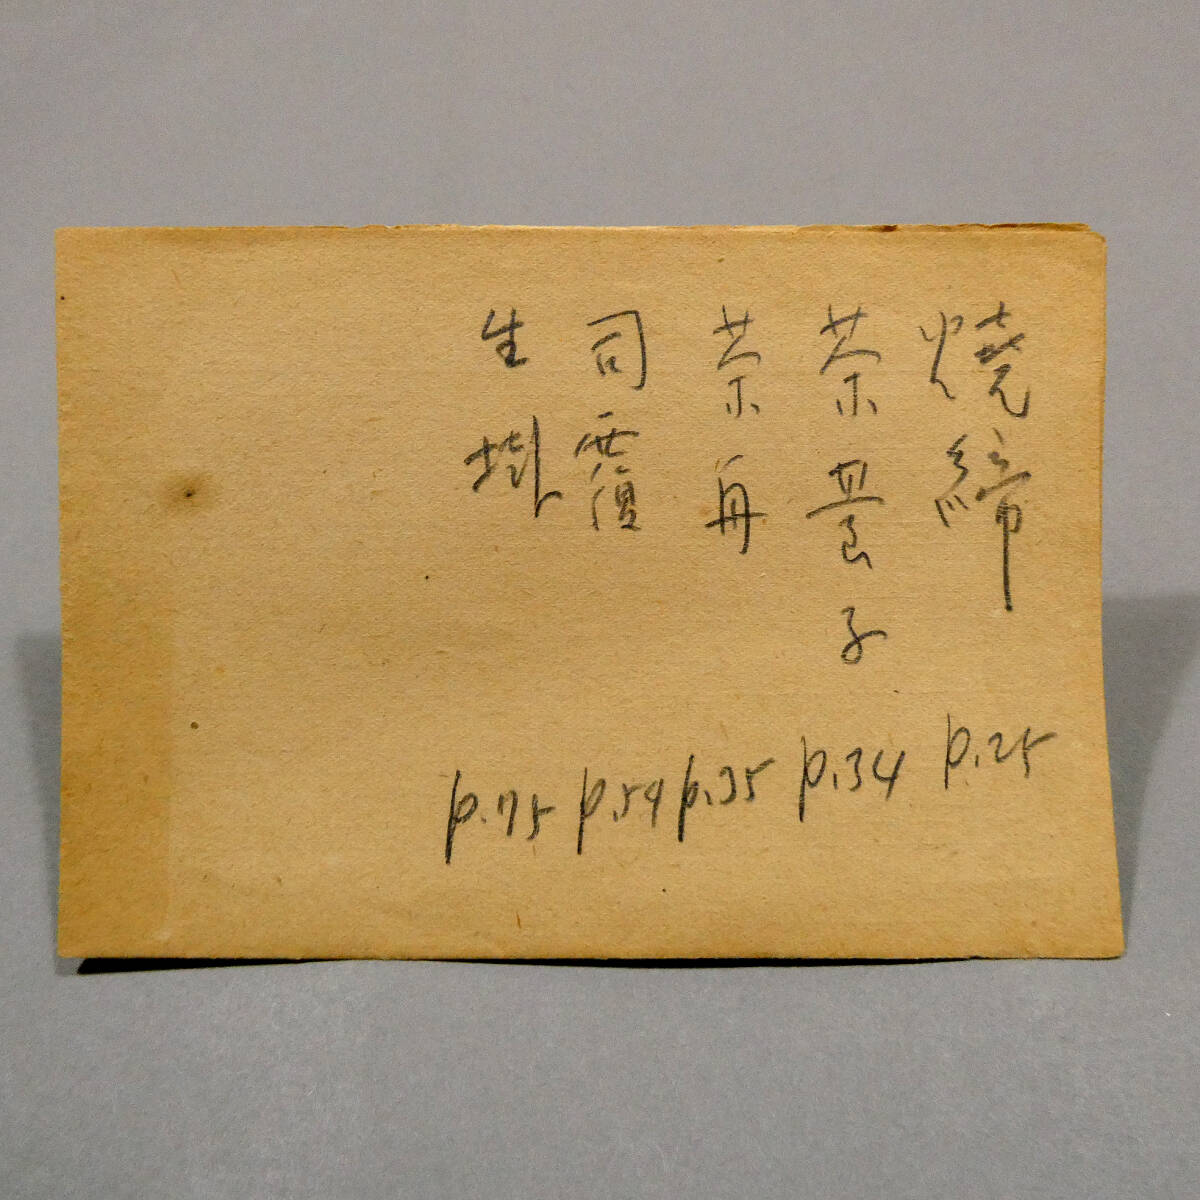 燒締 p.25
茶 子 p.34
茶舟 p.35
司覆 p.59
生掛 p.75